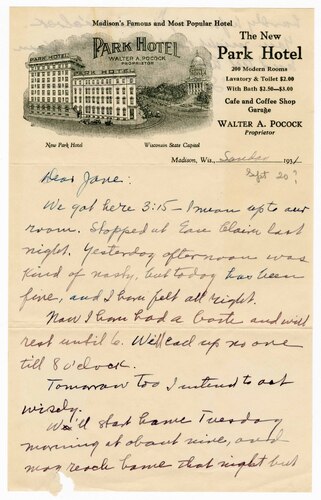 Madison's Famous and Most Popular Hotel
PARK HOTEL
WALTER A. POCOCK
PROPRIETOR
PARK HOTEL
PARK HOTEL
New Park Hotel
Wisconsin State Capitol
The New
Park Hotel
200 Modern Rooms
Lavatory & Toilet $2.00
With Bath $2.50—$3.00
Cafe and Coffee Shop
Garage
WALTER A. POCOCK
Proprietor
Madison, Wis., Sunday 1931
Sept 20?
Dear Jane:
We got here 3:15 — I mean up to our
room. Stopped at Eau Claire last
night. Yesterday afternoon was
kind of nasty, but today has been
fine, and I have felt all right.
Now I have had a and will
rest until 6. We'll up no one
till 8 o'clock.
Tomorrow too I intend to act
wisely.
We'll start home Tuesday
morning at about nine, and
may reach home that night but